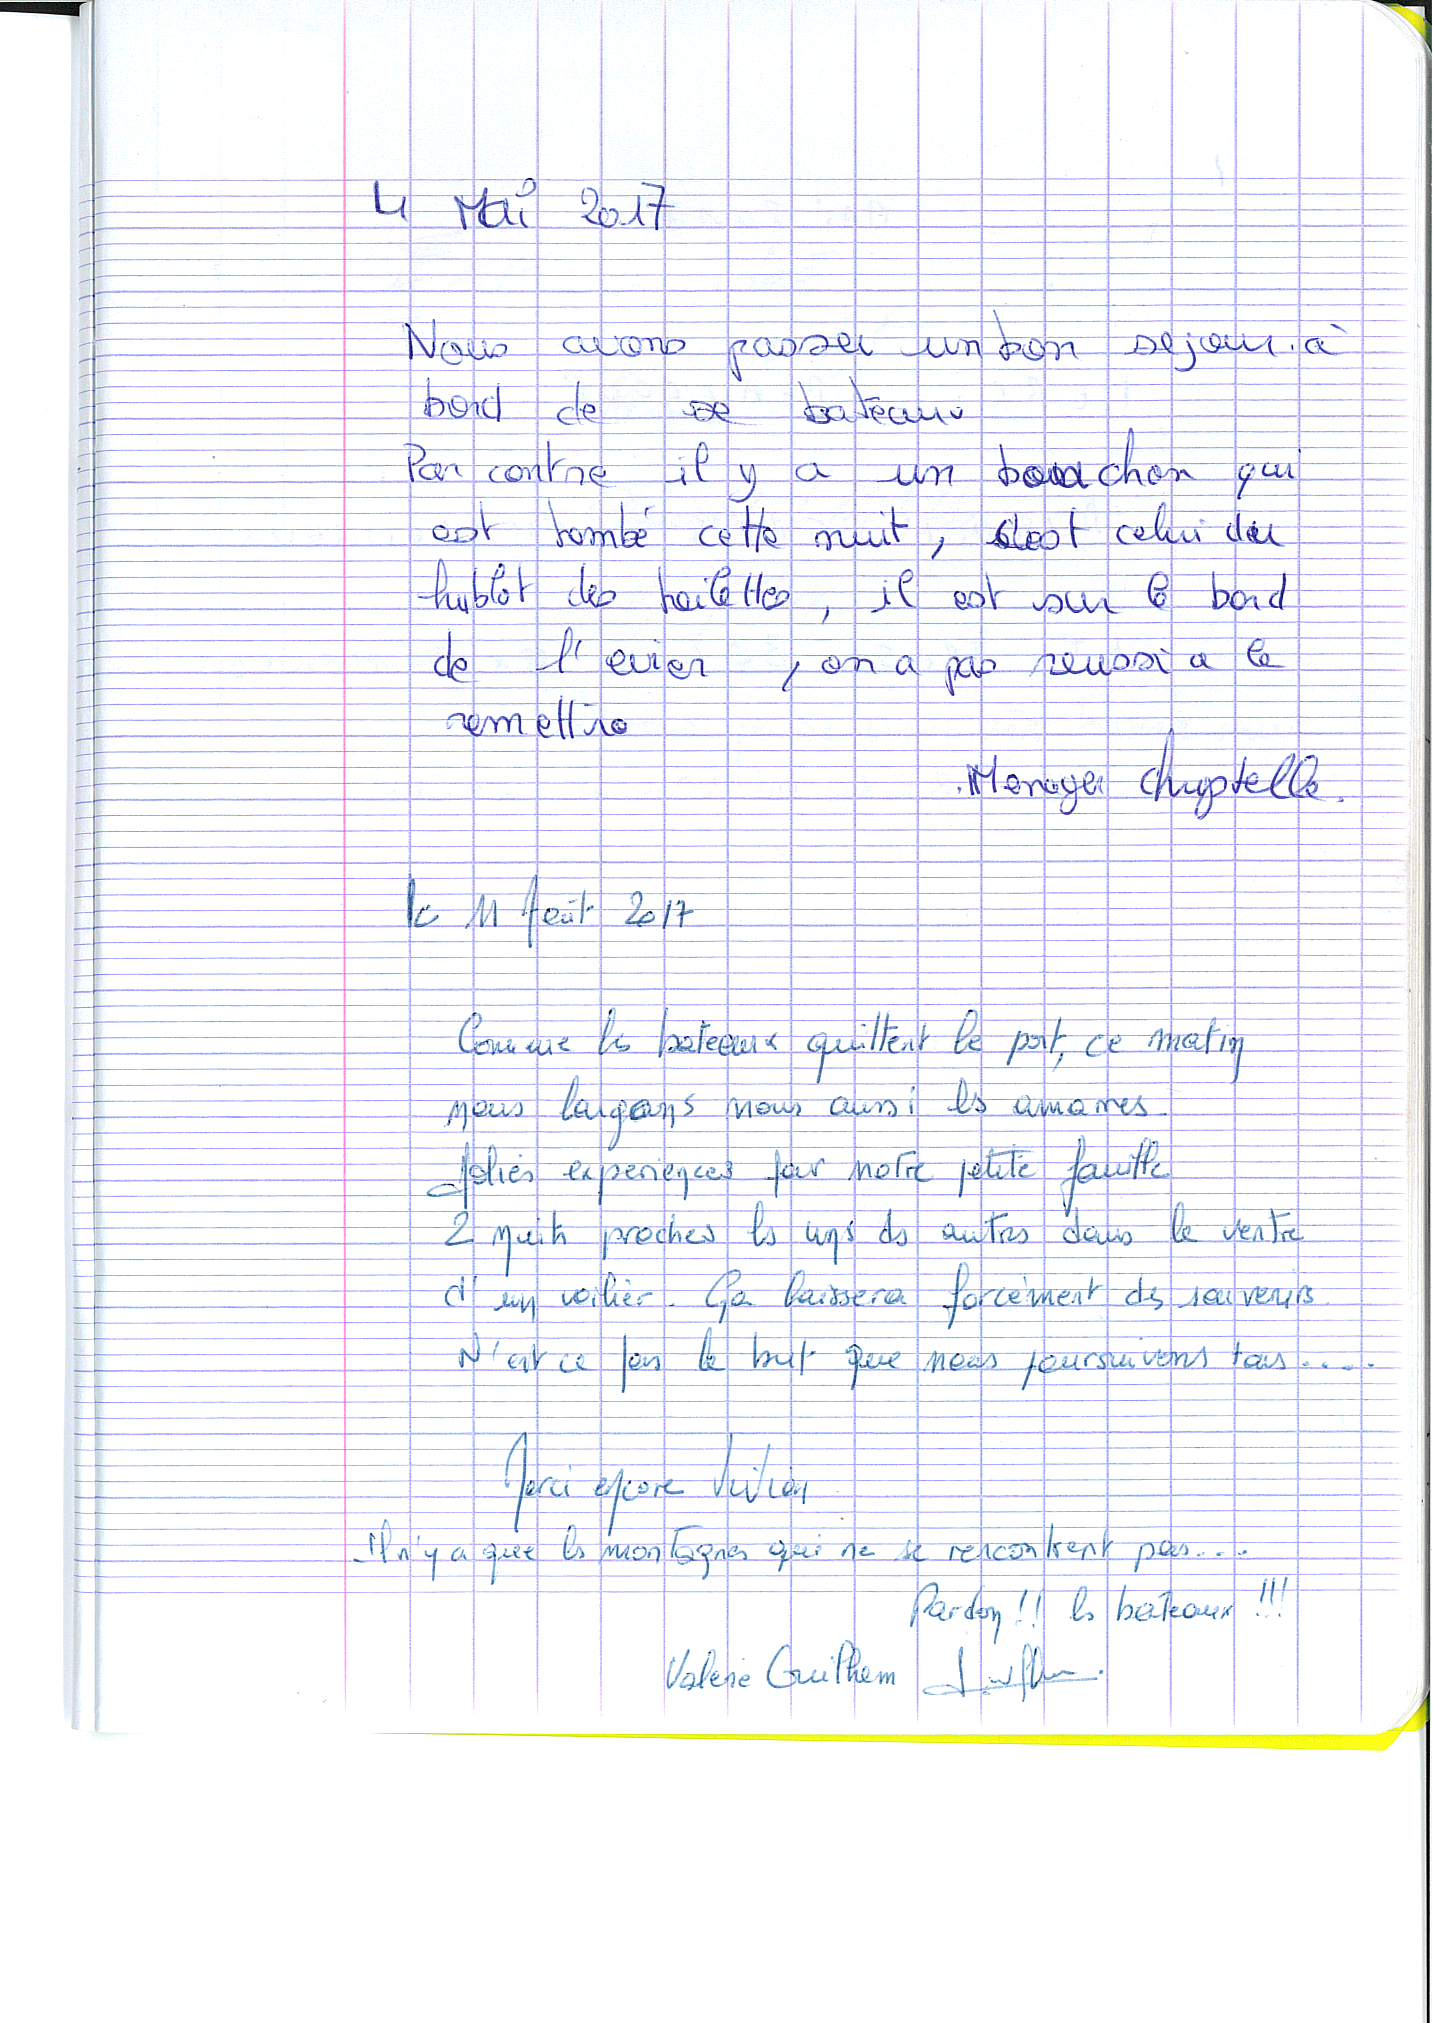 4 Mai 2017
Nous avons passer un bon sejour à
bord de se bateaux
Par contre il y a un bouchon qui
est tombé cette nuit, c'est celui du
hublot des toilettes, il est sur le bord
de l'evier, on a pas reussi a le
remettre
Menager
le 11 Août 2017
Comme les bateaux quittent le port, ce matin
nous larguons nous aussi les amarres.
Jolies experiences par notre petite famille
2 nuits proches les uns des autres dans le ventre
d'un voilier. Ça laissera forcément des souvenirs.
N'est ce pas le but que nous poursuivons tous.....
Merci encore Vivian
Il n'y a que les montagnes qui ne se rencontrent pas....
Pardon!! les bateaux!!!
Valerie Guilhem